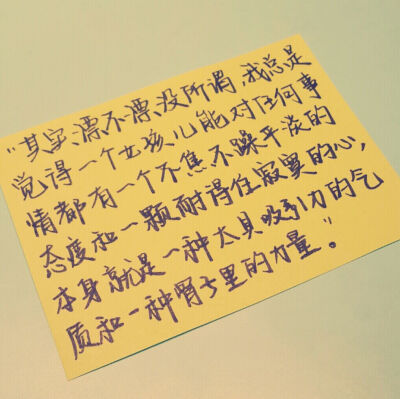 "其实,漂不漂,没所谓,我总是
觉得一个女孩儿能对任何事
情都有一个不焦不躁平淡的
态度和一颗耐得住寂寞的心,
本身就是一种太具吸引力的气
质和一种骨子里的力量。"